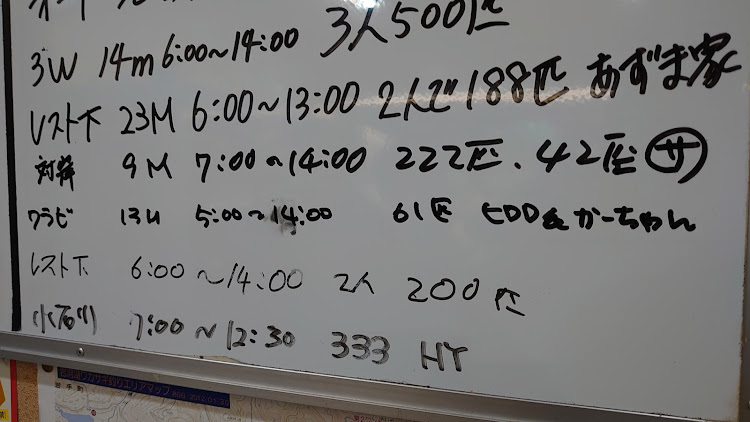 3W 14m 6:00~14:00 3人500匹
レスト下 23M 6:00~13:00 2人で188匹 あずま家
対岸 9M 7:00~14:00 222匹、42匹 サ
ワラビ 13M 5:00~14:00 61匹 ヒロロ&かーちゃん
レスト下 6:00~14:00 2人 200匹
小石川 7:00~12:30 333 HY
ワカサギ釣りエリアマップ
岩手町